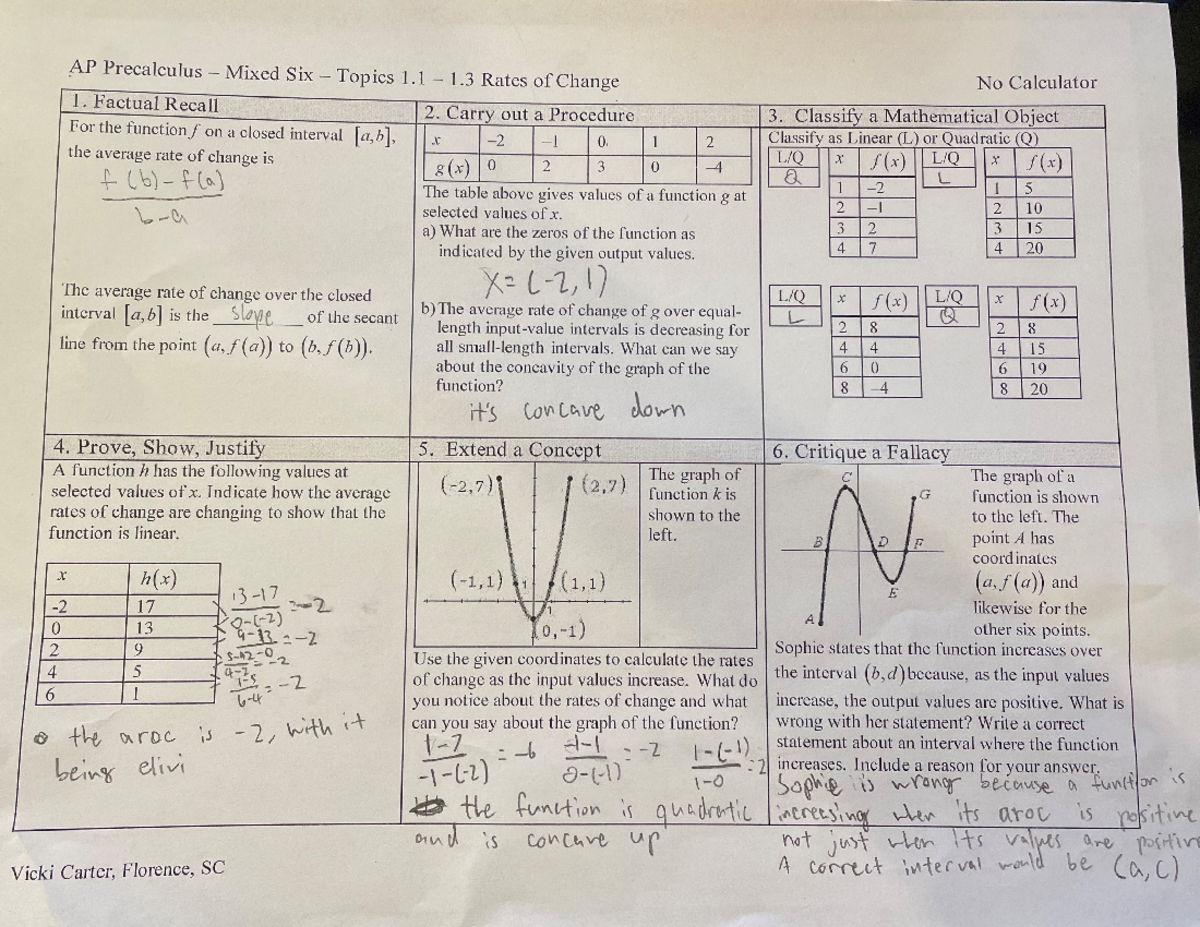 AP Precalculus – Mixed Six – Topics 1.1 – 1.3 Rates of Change
No Calculator
1. Factual Recall
For the function f on a closed interval [a,b],
the average rate of change is
f(b)-f(a)
b-a
The average rate of change over the closed
interval [a,b] is the slope of the secant
line from the point (a, f(a)) to (b, f(b)).
2. Carry out a Procedure
x -2 -1 0. 1 2
g(x) 0 2 3 0 -4
The table above gives values of a function g at
selected values of x.
a) What are the zeros of the function as
indicated by the given output values.
X= (-2,1)
b) The average rate of change of g over equal-
length input-value intervals is decreasing for
all small-length intervals. What can we say
about the concavity of the graph of the
function?
it's concave down
3. Classify a Mathematical Object
Classify as Linear (L) or Quadratic (Q)
L/Q x f(x) L/Q x f(x)
Q L
1 -2 1 5
2 -1 2 10
3 2 3 15
4 7 4 20
L/Q x f(x) L/Q x f(x)
L Q
2 8 2 8
4 4 4 15
6 0 6 19
8 -4 8 20
4. Prove, Show, Justify
A function h has the following values at
selected values of x. Indicate how the average
rates of change are changing to show that the
function is linear.
x h(x)
-2 17
0 13
2 9
4 5
6 1
13-17
0-(-2)
=-2
9-13
2-0
=-2
4-2
=-2
1-5
6-4
=-2
the aroc is -2, with it
being elivi
5. Extend a Concept
(-2,7) (2,7)
(-1,1) 1 (1,1)
1
(0,-1)
The graph of
function k is
shown to the
left.
Use the given coordinates to calculate the rates
of change as the input values increase. What do
you notice about the rates of change and what
can you say about the graph of the function?
1-7
-1-(-2)
=-6
-1-1
0-(-1)
=-2
1-(-1)
1-0
=2
the function is quadratic
and is concave up
6. Critique a Fallacy
C
G
B D F
E
A
The graph of a
function is shown
to the left. The
point A has
coordinates
(a, f(a)) and
likewise for the
other six points.
Sophie states that the function increases over
the interval (b,d) because, as the input values
increase, the output values are positive. What is
wrong with her statement? Write a correct
statement about an interval where the function
increases. Include a reason for your answer.
Sophie is wrong because a function is
increasing when its aroc is positive
not just when its values are positive
A correct interval would be (a,c)
Vicki Carter, Florence, SC